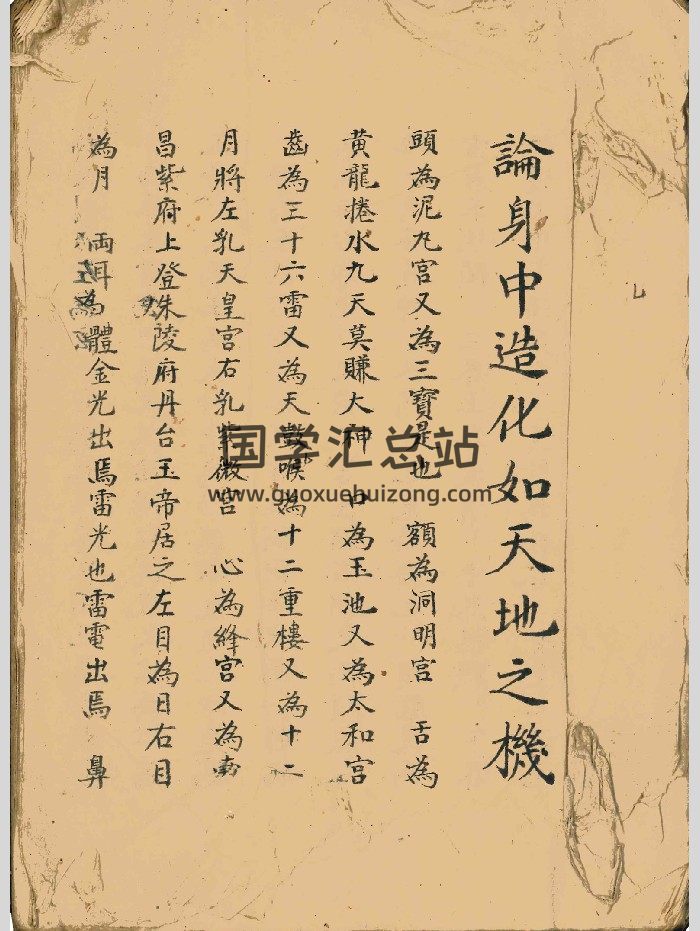 論身中造化如天地之機
頭為泥九宮又為三寶是也 額為洞明宮 舌為
黃龍捲水九天莫賺大神 口為玉池又為太和宮
齒為三十六雷又為天鼓喉為十二重樓又為十二
月將左乳天皇宮右乳紫微宮 心為絳宮又為南
昌紫府上登朱陵府丹台玉帝居之左目為日右目
為月 両耳為體金光出焉雷光也雷電出焉 鼻
国学汇总站
www.guoxuehuizong.com